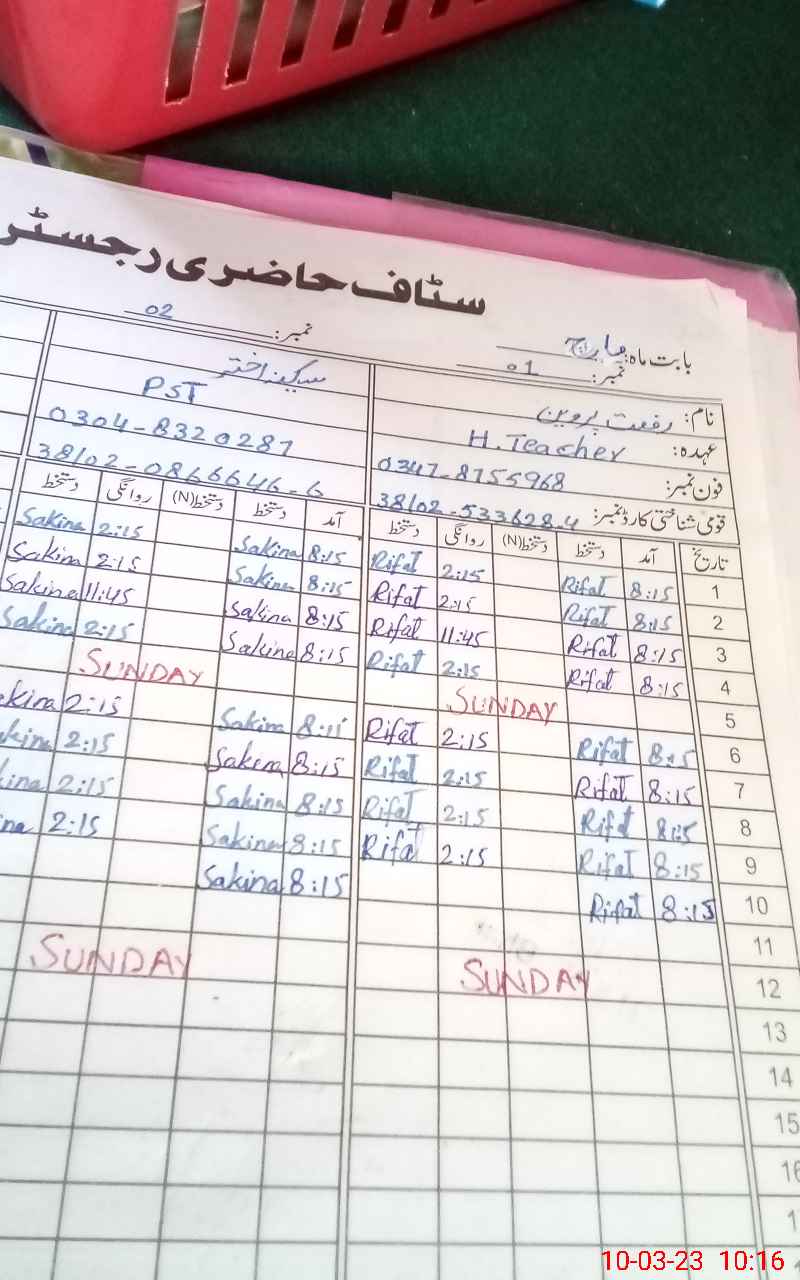 سٹاف حاضری رجسٹر
بابت ماہ: مارچ
نمبر: 01 نمبر: 02
نام: رفعت پروین سکینہ اختر
عہدہ: H.Teacher PST
فون نمبر: 0347-8755968 0304-8320287
قومی شناختی کارڈ نمبر: 38102-533628-4 38102-0866646-6
تاریخ آمد دستخط دستخط(N) روانگی دستخط آمد دستخط دستخط(N) روانگی دستخط
1 8:15 Rifat 2:15 Rifat 8:15 Sakina 2:15 Sakina
2 8:15 Rifat 2:15 Rifat 8:15 Sakina 2:15 Sakina
3 8:15 Rifat 11:45 Rifat 8:15 Sakina 11:45 Sakina
4 8:15 Rifat 2:15 Rifat 8:15 Sakina 2:15 Sakina
5 SUNDAY SUNDAY
6 8:15 Rifat 2:15 Rifat 8:15 Sakina 2:15 akina
7 8:15 Rifat 2:15 Rifat 8:15 Sakina 2:15 kina
8 8:15 Rifat 2:15 Rifat 8:15 Sakina 2:15 ina
9 8:15 Rifat 2:15 Rifat 8:15 Sakina 2:15 na
10 8:15 Rifat 8:15 Sakina
11
12 SUNDAY SUNDAY
13
14
15
16
10-03-23 10:16